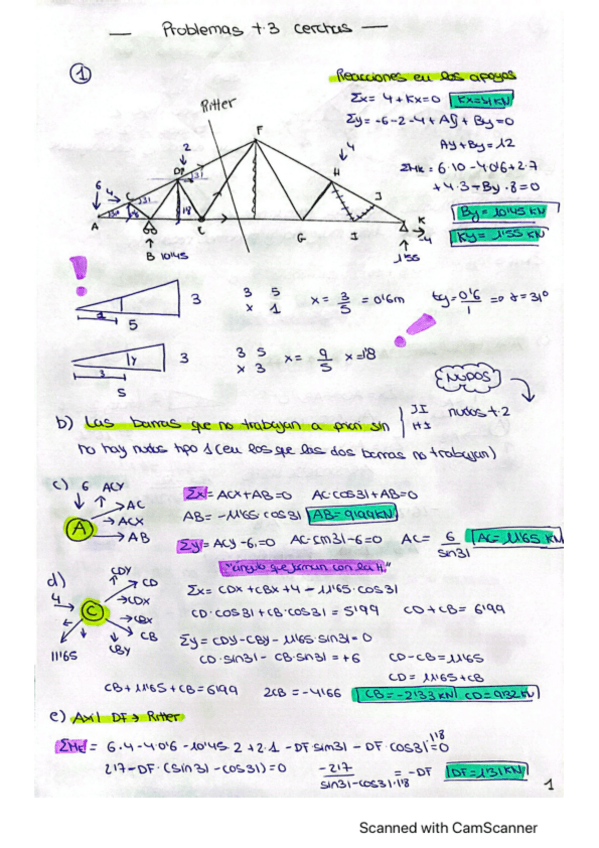 — Problemas t.3 cerchas —
①
Reacciones en los apoyos
Σx = 4+Kx=0 Kx=-4KN
Σy = -6-2-4+Ay+By=0
Ay+By=12
ΣMk = 6·10-4·0'6+2·7
+4·3-By·8=0
By = 10'45 KN
Ky = 1'55 KN
Ritter
F
2
4
DP
H
31
6
4
C
31
J
1'8
K
A
E
G
I
-4
B 10'45
1'55
!
3
1
5
3 5
x 1
x = 3/5 = 0'6m
tg = 0'6/1 => α = 31º
!
y
3
3
5
3 5
x 3
x = 9/5 x=1'8
NUDOS
b) Las barras que no trabajan a priori sin
JI
HI
nudos t.2
no hay nudos tipo 1 (en los que las dos barras no trabajan)
c) 6 ACY
AC
A
ACX
AB
Σx = ACX+AB=0 AC·cos31+AB=0
AB = -11'65·cos31 AB=-9'99KN
Σy = ACy-6=0 AC·sin31-6=0 AC = 6/sin31 AC=11'65 KN
"ángulo que forman con la H."
d)
CDY
CD
4
CDX
C
CBX
CB
CBY
11'65
Σx = CDX+CBX+4-11'65·cos31
CD·cos31+CB·cos31 = 5'99 CD+CB = 6'99
Σy = CDY-CBY-11'65·sin31=0
CD·sin31-CB·sin31=+6 CD-CB=11'65
CD = 11'65+CB
CB+11'65+CB=6'99 2CB=-4'66 CB=-2'33KN CD=9'32KN
e) Axil DF → Ritter
ΣME = 6·4-4·0'6-10'45·2+2·1-DF·sin31-DF·cos31·1'8=0
2'17-DF·(sin31-cos31)=0 -2'17/sin31-cos31·1'8 = -DF DF=1'31KN
1
Scanned with CamScanner